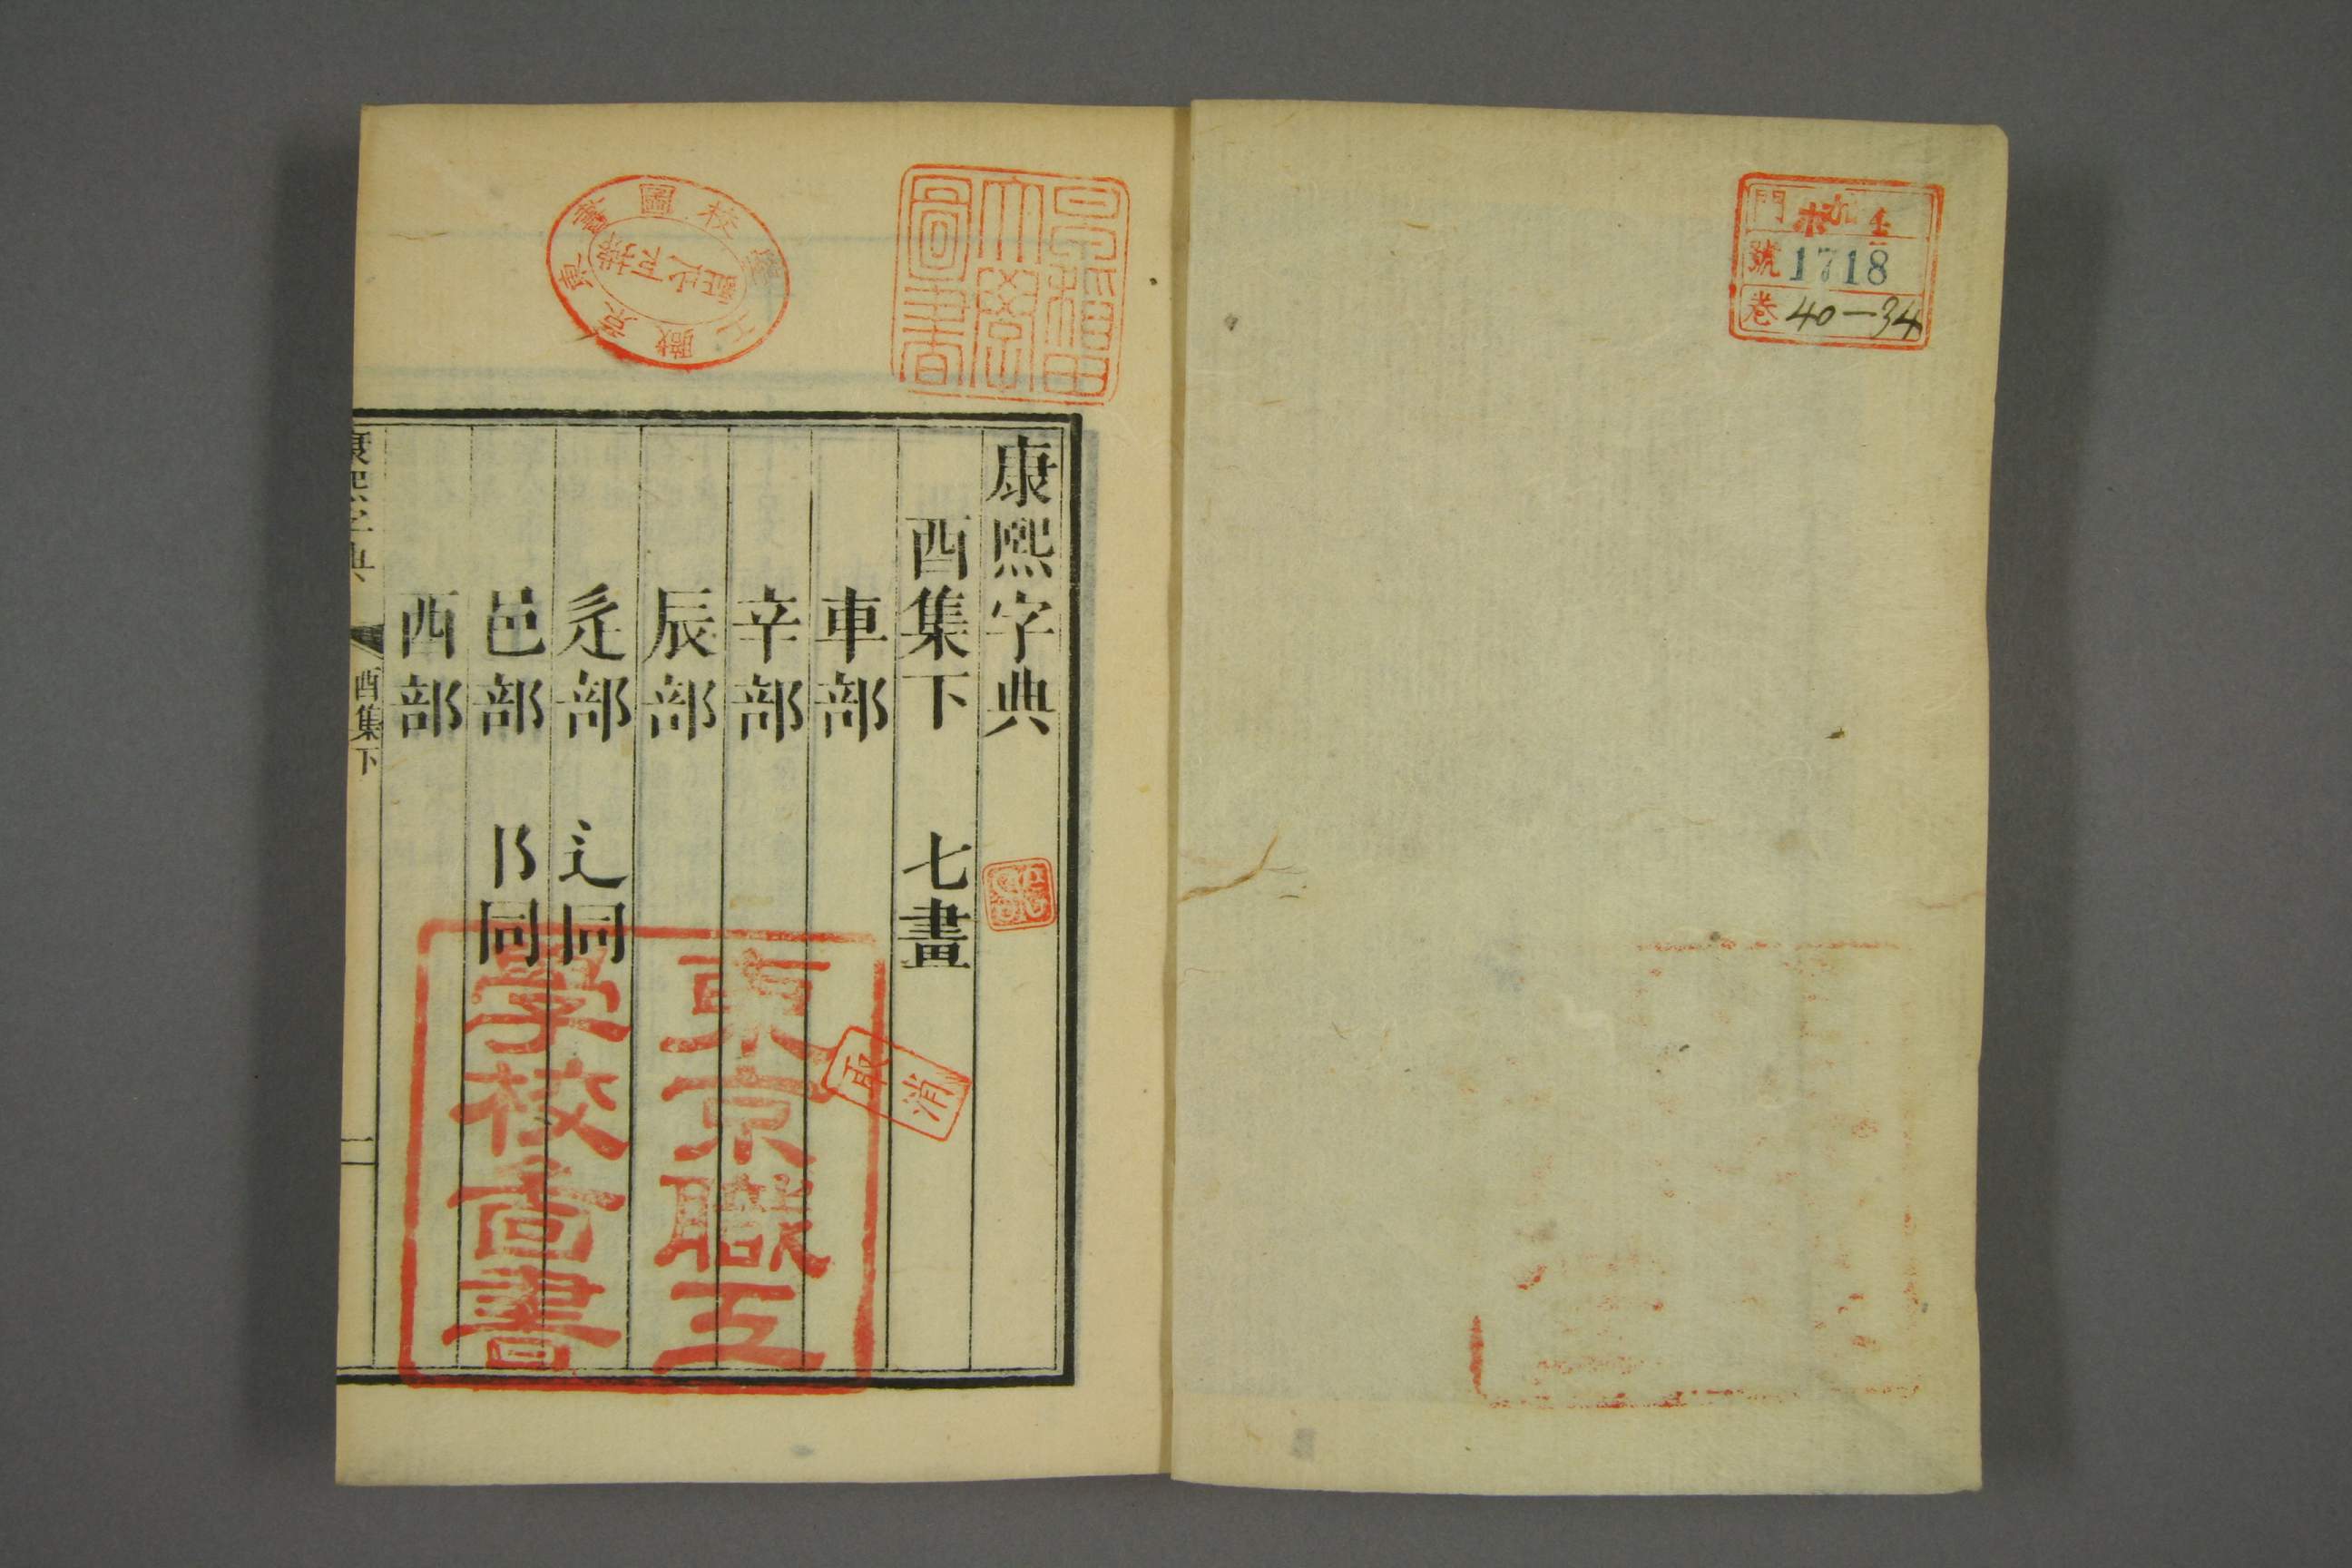 門
號 1718
卷 40-34
早稲田大學圖書
康熙字典
酉集下 七畫
車部
辛部
辰部
辵部 辶同
邑部 阝同
酉部
康熙字典 酉集下 一
東京職工
學校啚書
取消